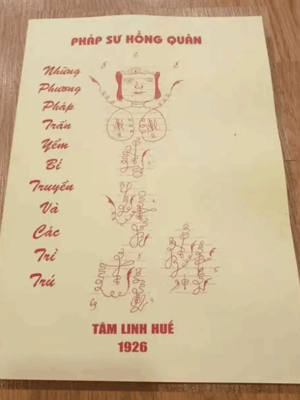 PHÁP SƯ HỒNG QUÂN
Những
Phương
Pháp
Trấn
Yểm
Bí
Truyền
Và
Các
Trì
Trú
TÂM LINH HUẾ
1926